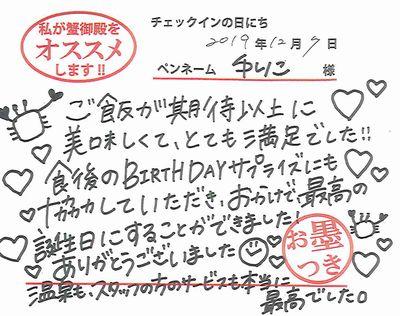 私が蟹御殿を
オススメ
します!!
チェックインの日にち
2019年12月7日
ペンネーム ゆりこ 様
ご飯が期待以上に
美味しくて、とても満足でした!!
食後のBIRTHDAYサプライズにも
協力していただき、おかげで、最高の
誕生日にすることができました!
ありがとうございました
温泉も、スタッフの方のサービスも本当に
最高でした。
お墨
つき